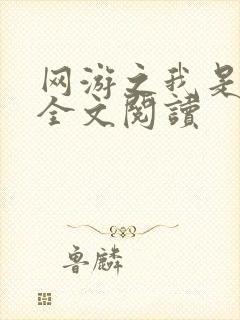 网游之我是
全文閱讀
鲁麟